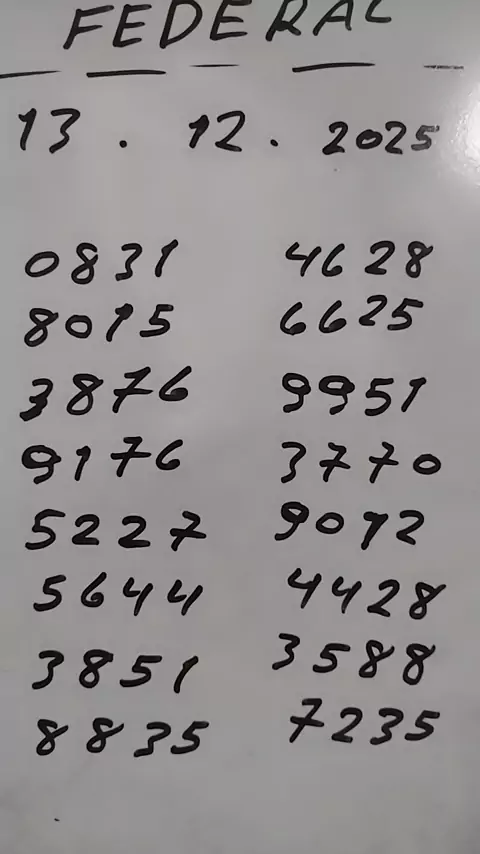 FEDERAL
13 . 12 . 2025
0831 4628
8015 6625
3876 9951
9176 3770
5227 9012
5644 4428
3851 3588
8835 7235